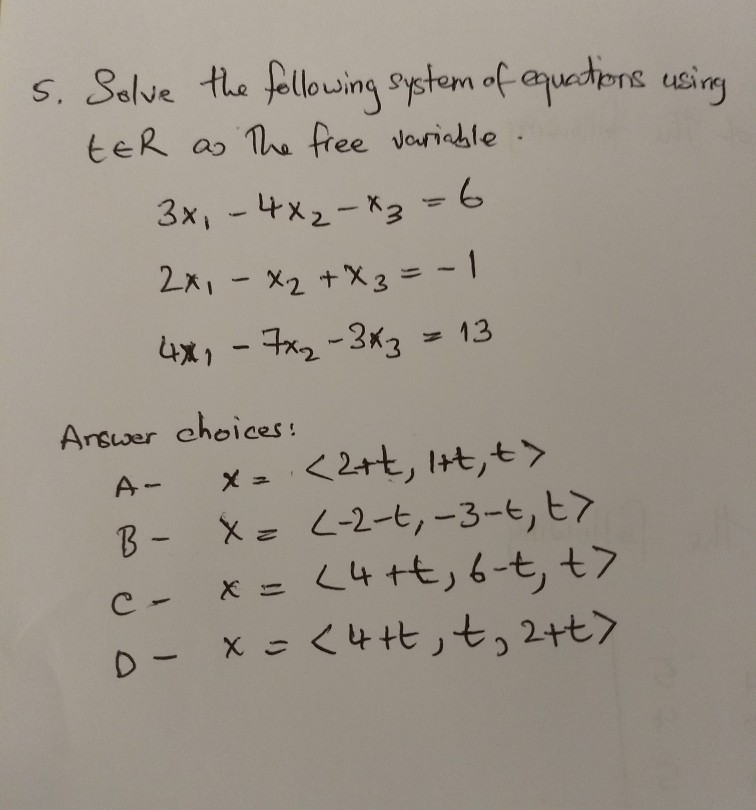 5. Solve the following system of equations using
t∈R as The free variable.
3x₁ - 4x₂ - x₃ = 6
2x₁ - x₂ + x₃ = -1
4x₁ - 7x₂ - 3x₃ = 13
Answer choices:
A- x = <2+t, 1+t, t>
B- x = <-2-t, -3-t, t>
C- x = <4+t, 6-t, t>
D- x = <4+t, t, 2+t>